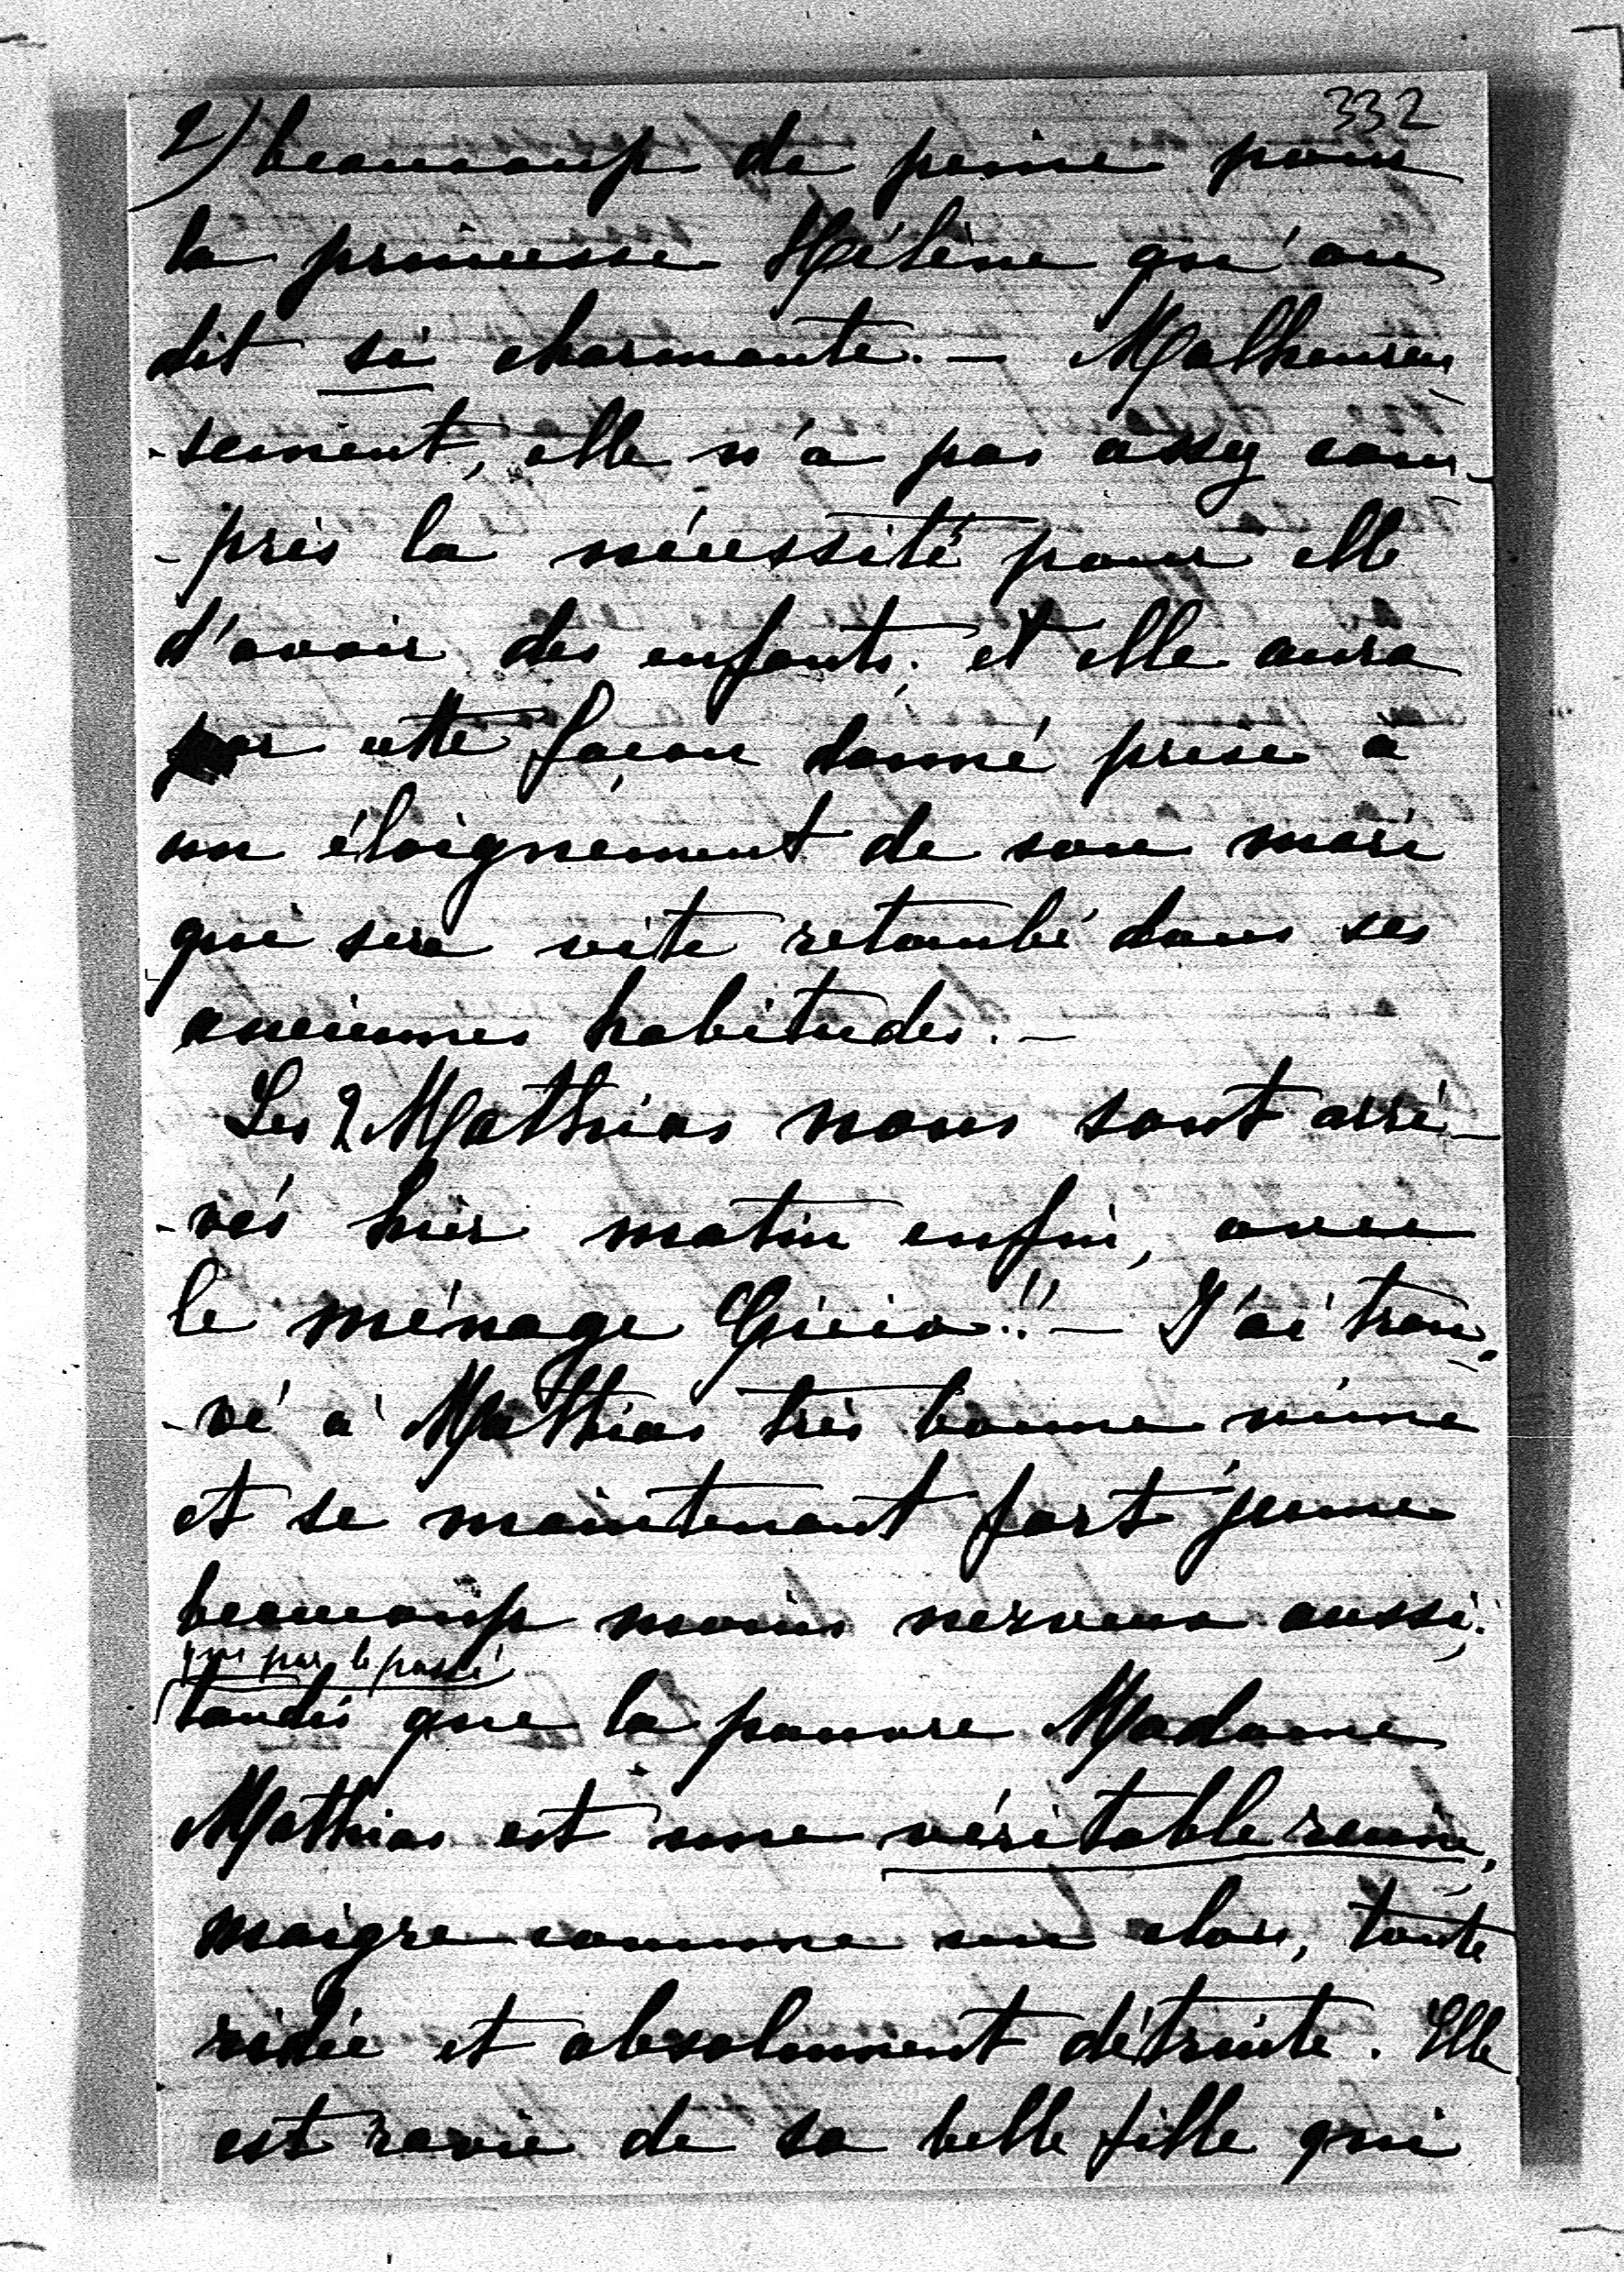 332
2) beaucoup de peine pour
la princesse Hélène qu'on
dit si charmante. — Malheureu
-sement, elle n'a pas assez com-
-pris la nécessité pour elle
d'avoir des enfants; et elle aura
par cette façon donné prise à
un éloignement de son mari
qui sera vite retombé dans ses
anciennes habitudes. —
Les 2 Mathias nous sont arri-
-vés hier matin enfin, avec
le ménage !! — J'ai trou-
-vé à Mathias très bonne mine
et se maintenant fort jeune
beaucoup moins nerveux aussi;
que par le passé
tandis que la pauvre Madame
Mathias est une véritable ruine,
maigre comme un clou, toute
ridée et absolument détruite. Elle
est ravie de sa belle fille qui